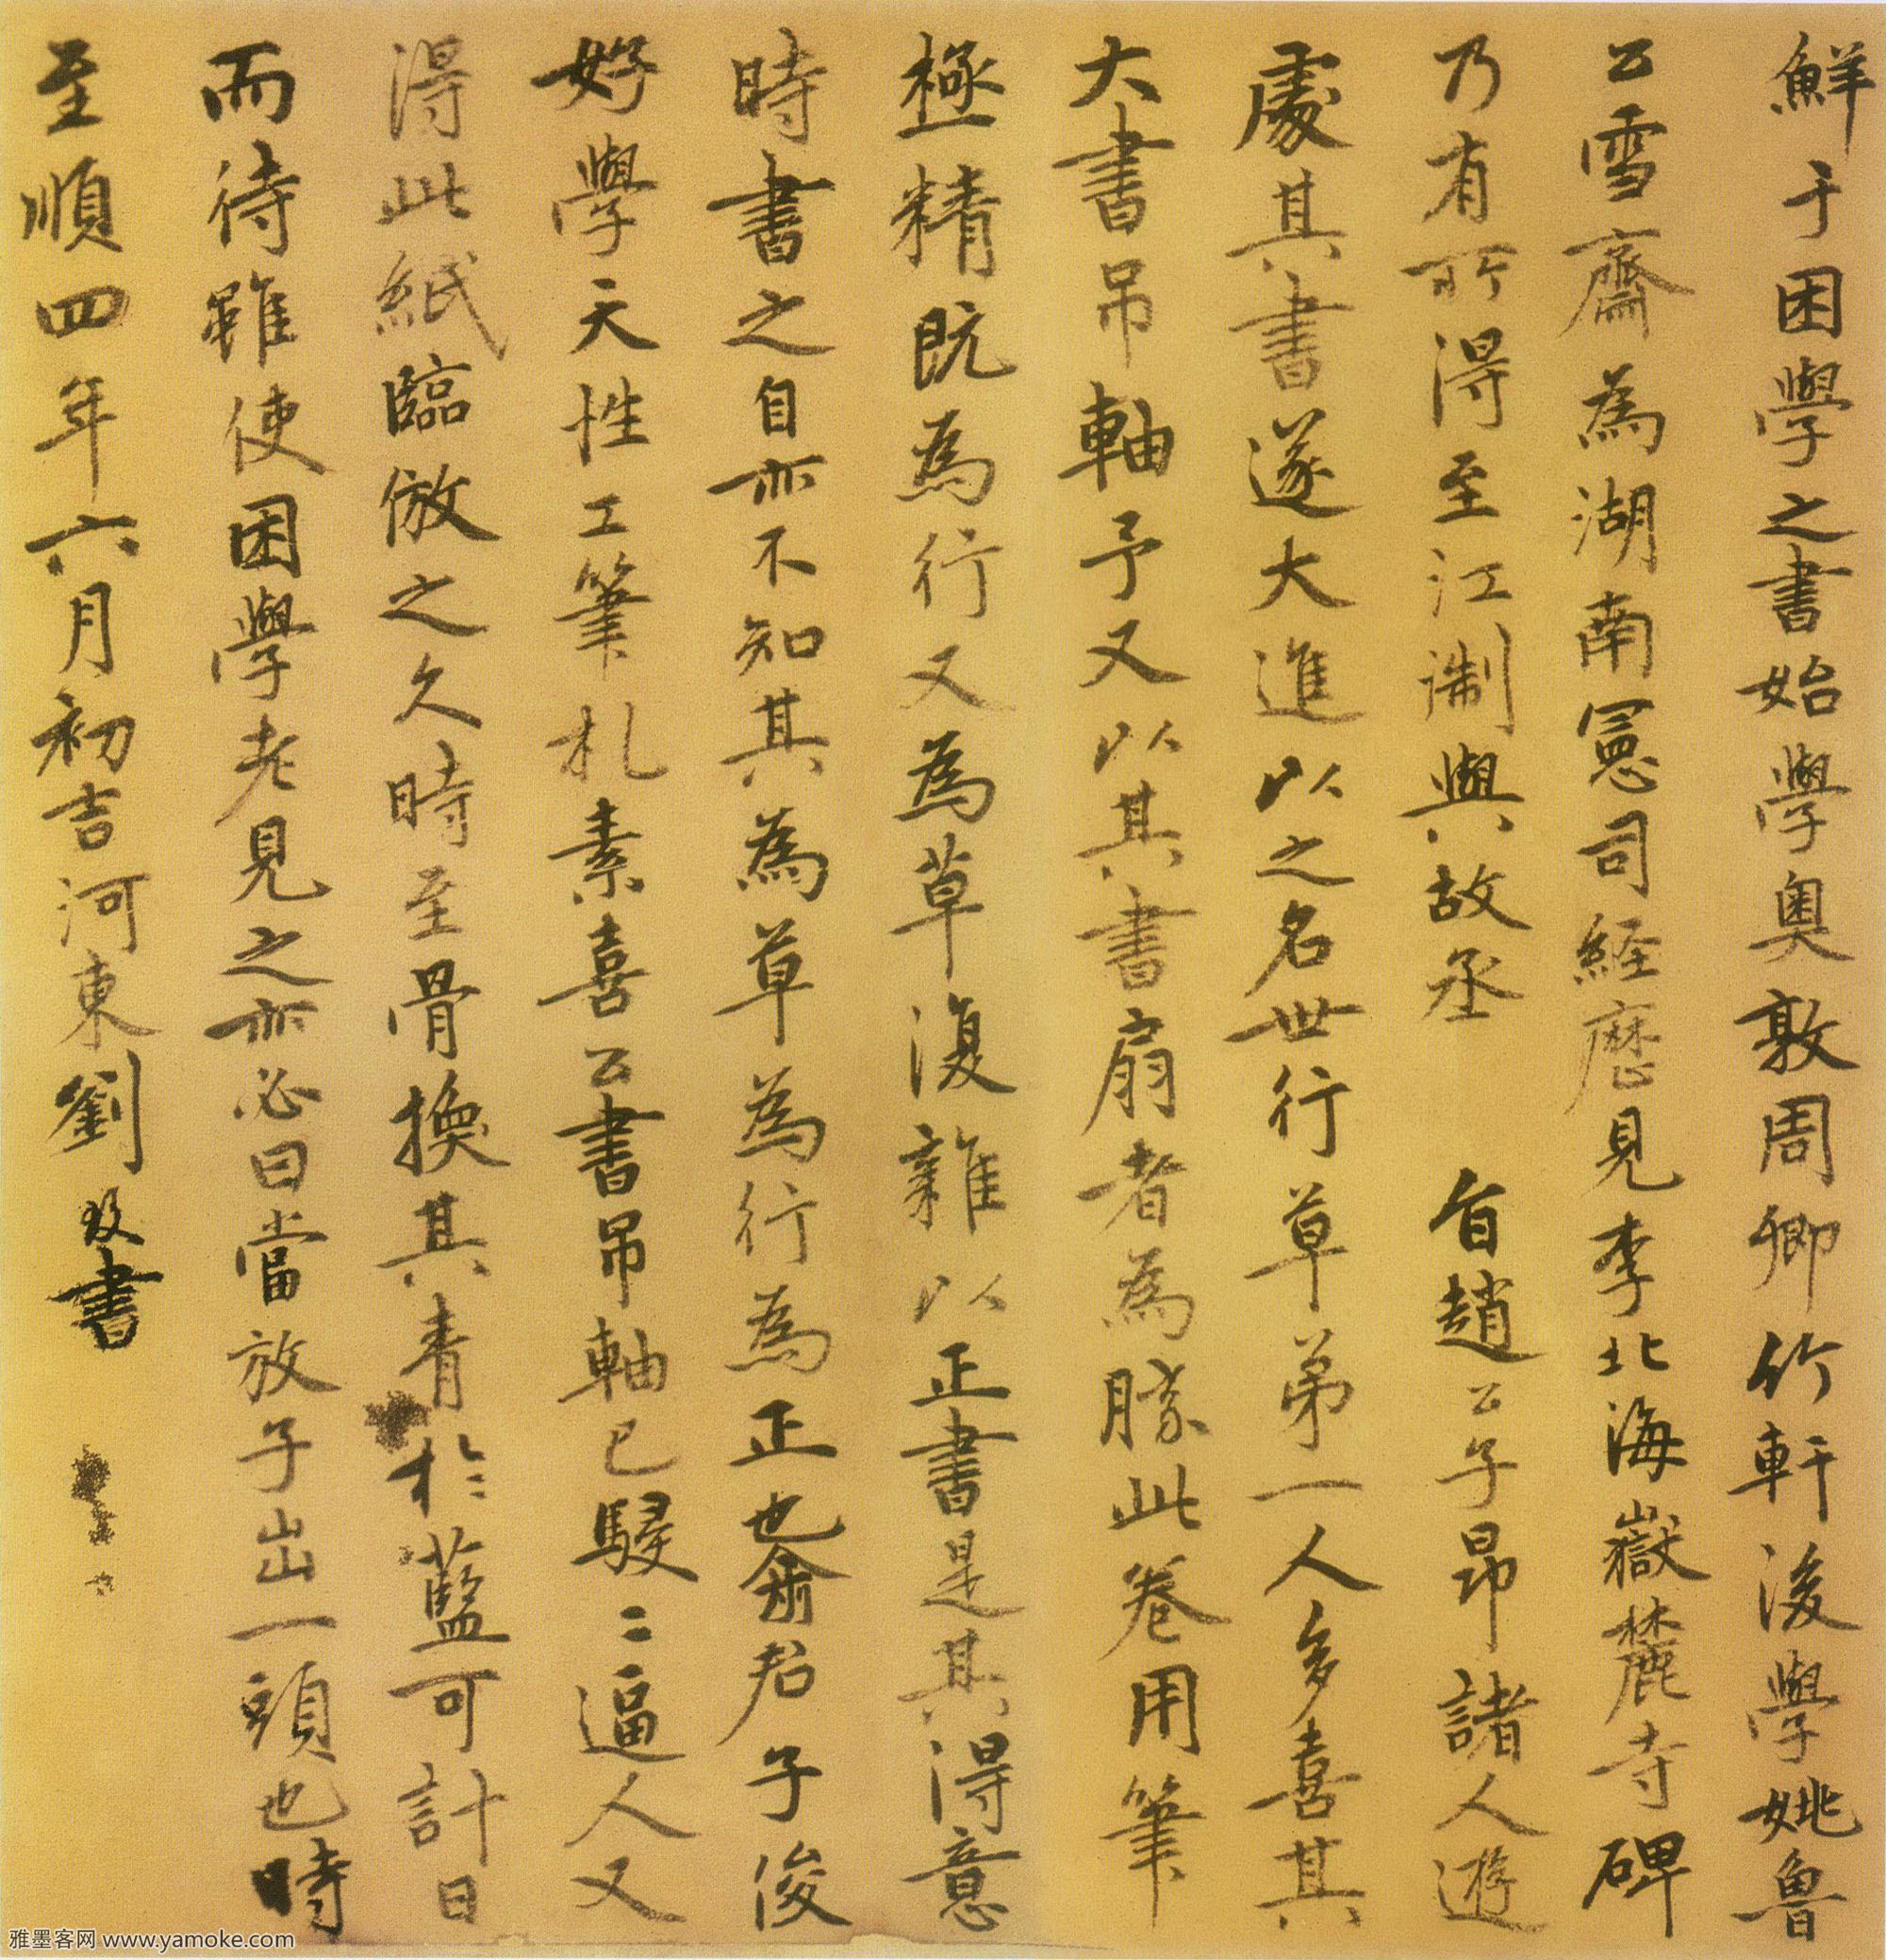 鮮于困學之書始學奧敦周卿竹軒後學姚魯
公雪齋為湖南憲司経歷見李北海嶽麓寺碑
乃有所得至江淛與故丞 旨趙公子昂諸人遊
處其書遂大進以之名世行草弟一人多喜其
大書吊軸予又以其書扇者為勝此卷用筆
極精既為行又為草復雜以正書是其得意
時書之自亦不知其為草為行為正也俞君子俊
好學天性工筆札素喜公書吊軸已駸二逼人又
得此紙臨倣之久時至骨換其青於藍可計日
而待雖使困學老見之亦必曰當放子出一頭也時
至順四年六月初吉河東劉致書
雅墨客网 www.yamoke.com